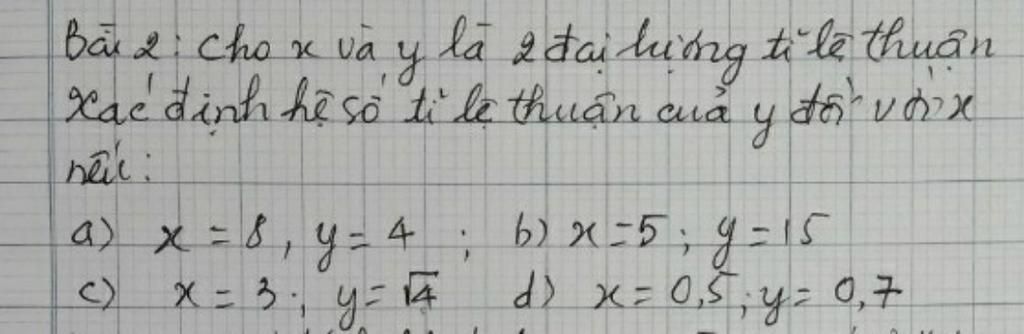 Bài 2: Cho x và y là 2 đại lượng tỉ lệ thuận
Xác định hệ số tỉ lệ thuận của y đối với x
nếu:
a) x = 8, y = 4 ; b) x = 5; y = 15
c) x = 3; y = √4 d) x = 0,5; y = 0,7